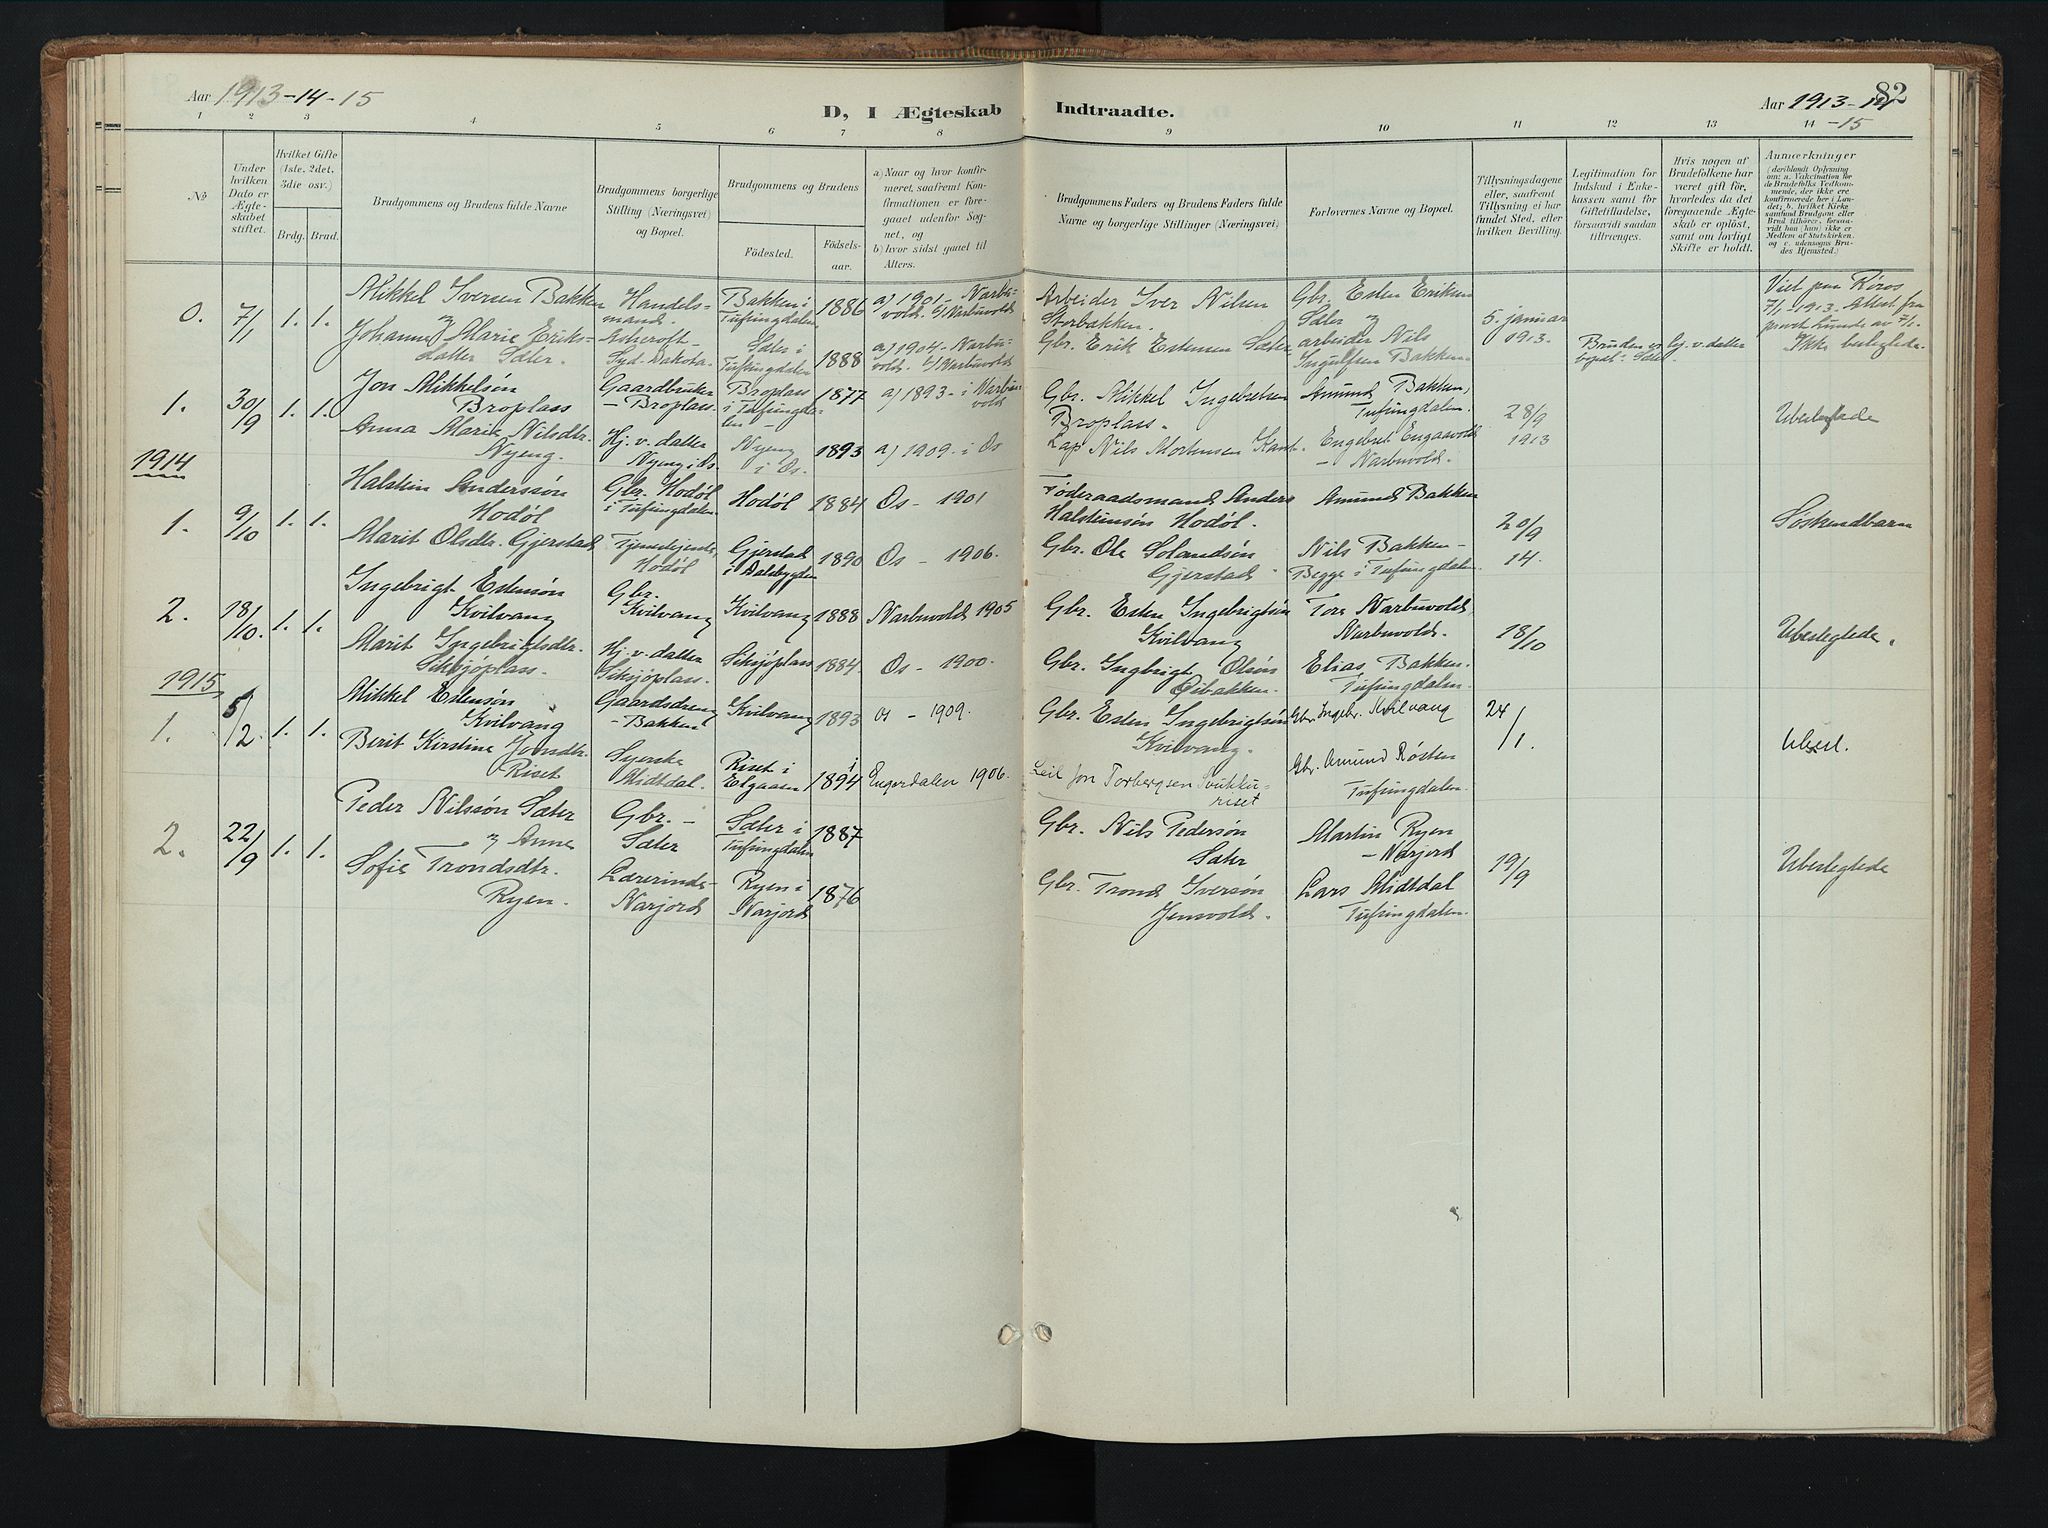 Aar 1913-14-15
D, I Ægteskab Indtraadte.
82
Aar 1913-14
-15
1 2 3 4 5 6 7 8 9 10 11 12 13 14
No
Under hvilken Dato er Ægteskabet stiftet.
Hvilket Gifte (1ste, 2det, 3die osv.)
Brdg. Brud.
Brudgommens og Brudens fulde Navne
Brudgommens borgerlige Stilling (Næringsvei) og Bopæl.
Brudgommens og Brudens
Fødested. Fødselsaar.
a) Naar og hvor konfirmeret, saafremt Konfirmationen er foregaaet udenfor Sognet, og
b) hvor sidst gaaet til Alters.
Brudgommens Faders og Brudens Faders fulde Navne og borgerlige Stillinger (Næringsvei)
Forlovernes Navne og Bopæl.
Tillysningsdagene eller, saafremt Tillysning ei har fundet Sted, efter hvilken Bevilling.
Legitimation for Indskud i Enkekassen samt for Giftetilladelse, forsaavidt saadan tiltrænges.
Hvis nogen af Brudefolkene har været gift før, hvorledes da det foregaaende Ægteskab er opløst, samt om lovligt Skifte er holdt.
Anmærkninger (deriblandt Oplysning om: a. Vakcination for de Brudefolks Vedkommende, der ikke ere konfirmerede her i Landet; b. hvilket Kirkesamfund Brudgom eller Brud tilhører, forsaavidt han (hun) ikke er Medlem af Statskirken, og c. udensogns Brudes Hjemsted.)
0. 7/1 1. 1.
Mikkel Iversen Bakken
og
Johanne Marie Eriksdatter Sæter.
Handelsmand.
Ashcroft-
Syd-Dakota-
Bakken i Tufsingdalen 1886
Sæter i Tufsingdalen 1888
a) 1901 - Narbuvold. b) Narbuvold
a) 1904 - Narbuvold. b) Narbuvold
Arbeider Iver Nilsen
Storbakken.
Gbr. Erik Estensen Sæter
Gbr. Esten Eriksen
Sæter og
arbeider Nils
Ingulfsen Bakken
5. januar
1913.
Bruden er hj. v. datter
bopæl: Sæter
Viet paa Røros
7/1-1913. Attest fra
7/1.
Ikke beslegtede.
1. 30/9 1. 1.
Jon Mikkelsøn
Broplass
Anna Marie Nilsdtr.
Nyeng.
Gaardbruker
- Broplass.
Hj. v. datter
Nyeng i Os.
Broplass i Tufsingdalen - 1877
Nyeng i Os. 1893
a) 1893 - i Narbuvold
a) 1909. i Os
Gbr. Mikkel Ingebretsen
Broplass.
Lap Nils Mortensen
Amund Bakken,
Tufsingdalen.
Engebret Engaavold
- Narbuvold.
28/9
1913
Ubeslegtede
1914
1. 9/10 1. 1.
Halstein Anderssøn
Hodøl
Marit Olsdtr. Gjerstad
Gbr. Hodøl
i Tufsingdalen
Tjenestejente,
Hodøl
Hodøl 1884
Gjerstad i Dalsbygden 1890
Os - 1901
Os - 1906.
Føderaadsmand Anders
Halsteinsøn Hodøl.
Gbr. Ole
Gjerstad
Amund Bakken
Nils Bakken -
Begge i Tufsingdalen
20/9
14.
Søskendbarn
2. 18/10. 1. 1.
Ingebrigt Estensøn
Kvilvang
Marit Ingebrigtsdtr.
Gbr.
Kvilvang
Hj. v. datter
Kvilvang 1888
1884
Narbuvold 1905
Os - 1900.
Gbr. Esten Ingebrigtsøn
Kvilvang
Gbr. Ingbrigt Olsøn
Tore Narbuvold,
Narbuvold.
Elias Bakken.
Tufsingdalen.
18/10
Ubeslegtede.
1915
1. 5/12 1. 1.
Mikkel Estensøn
Kvilvang
Berit Kirstine Jonsdtr.
Riset
Gaardsdreng
- Bakken
Syerske
Midtdal.
Kvilvang 1893
Riset i Elgaaen 1894
Os - 1909.
Engerdalen 1906.
Gbr. Esten Ingebrigtsøn
Kvilvang.
Leil Jon Torbergsen Svukkuriset
Gbr. Ingebr. Kvilvang
Gbr. Amund Røsten
Tufsingdalen.
24/1.
Ubesl.
2. 22/9 1. 1.
Peder Nilssøn Sæter
og Anne
Sofie Trondsdtr.
Ryen.
Gbr. -
Sæter
Lærerinde -
Narjord
Sæter i Tufsingdalen 1887
Ryen i Narjord 1876
Gbr. Nils Pedersøn
Sæter
Gbr. Trond Iversøn
Jensvold.
Martin Ryen
- Narjord
Lars Midtdal
Tufsingdalen.
19/9
Ubeslegtede